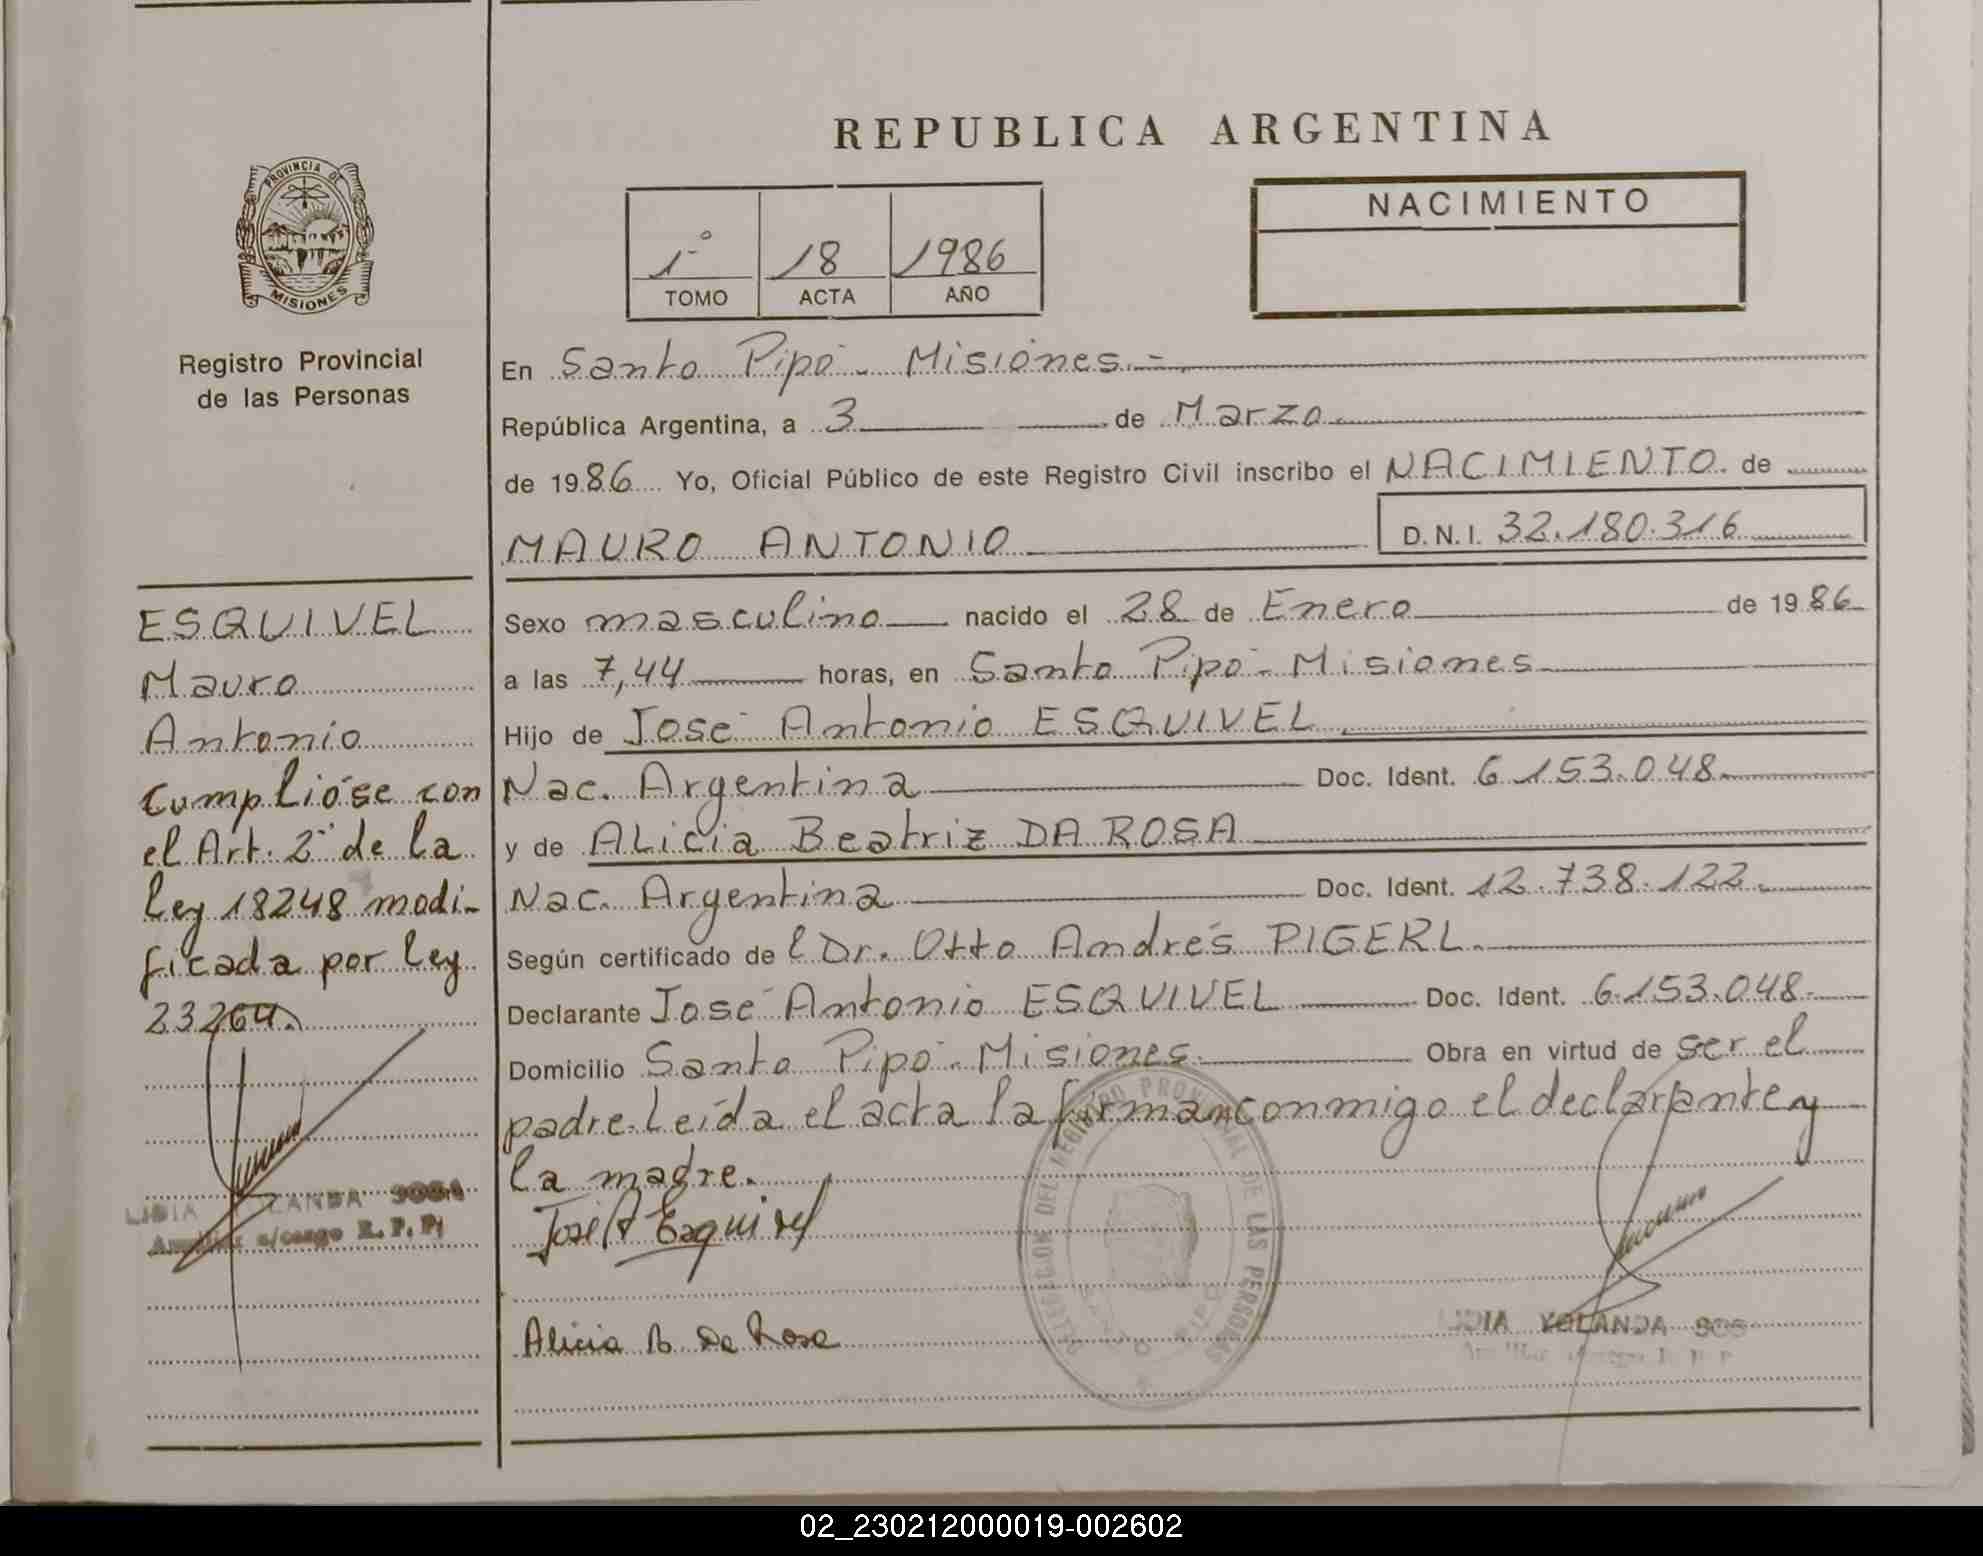 REPUBLICA ARGENTINA
PROVINCIA DE
MISIONES
Registro Provincial
de las Personas
1º 18 1986
TOMO ACTA AÑO
NACIMIENTO
En Santo Pipó - Misiones.-
República Argentina, a 3 de Marzo
de 1986 Yo, Oficial Público de este Registro Civil inscribo el NACIMIENTO de
MAURO ANTONIO D.N.I. 32.180.316
ESQUIVEL
Mauro
Antonio
Cumplióse con
el Art. 2º de la
Ley 18248 modi-
ficada por Ley
23264.
LIDIA
a/cargo R. P. P.
Sexo masculino nacido el 28 de Enero de 1986
a las 7,44 horas, en Santo Pipó - Misiones
Hijo de José Antonio ESQUIVEL
Nac. Argentina Doc. Ident. 6.153.048
y de ALicia Beatriz DA ROSA
Nac. Argentina Doc. Ident. 12.738.122
Según certificado del Dr. Otto Andrés PIGERL
Declarante José Antonio ESQUIVEL Doc. Ident. 6.153.048
Domicilio Santo Pipó - Misiones Obra en virtud de ser el
padre. Leída el acta la firman conmigo el declarante y
la madre.
José A Esquivel
Alicia B. Da Rosa
DELEGACION DEL REGISTRO PROVINCIAL DE LAS PERSONAS
LIDIA YOLANDA
02_230212000019-002602